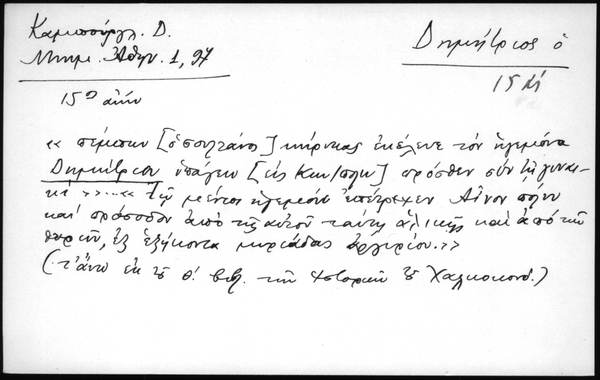 Καμπούρογλ. Δ.
Μνημ. Αθην. 1, 97
Δημήτριος ὁ
15 αἰ
15ος αἰών
« πέμπων [ὁ σουλτάνος] κήρυκας ἐκέλευε τὸν ἡγεμόνα
Δημήτριον ὑπάγειν [εἰς Κων/πολιν] πρόσθεν σὺν τῇ γυναι-
κί »...« Τῷ μέντοι ἡγεμόνι ἐπέτρεψεν Αἶνον πόλιν
καὶ πρόσοδον ἀπὸ τῆς αὐτοῦ ταύτῃ ἁλικῆς καὶ ἀπὸ τῶν
θυρῶν, ἐξ ἑξήκοντα μυριάδας ἀργυρίου.»
(τ' ἄνω ἐκ τοῦ θ'. βιβ. τῶν Ἱστοριῶν τοῦ Χαλκοκονδ.)